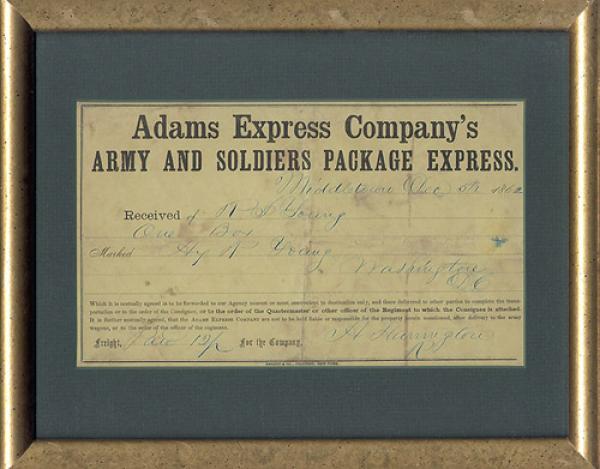 Adams Express Company's
ARMY AND SOLDIERS PACKAGE EXPRESS.
Middletown Dec 5th 1862
Received of R S Young
One Box
Marked Hy R Young
Washington
DC
Which it is mutually agreed is to be forwarded to our Agency nearest or most convenient to destination only, and there delivered to other parties to complete the transportation or to the order of the Consignee, or to the order of the Quartermaster or other officer of the Regiment to which the Consignee is attached.
It is further mutually agreed, that the ADAMS EXPRESS COMPANY are not to be held liable or responsible for the property herein mentioned, after delivery to the army wagons, or to the order of the officer of the regiment.
Freight, For the Company,